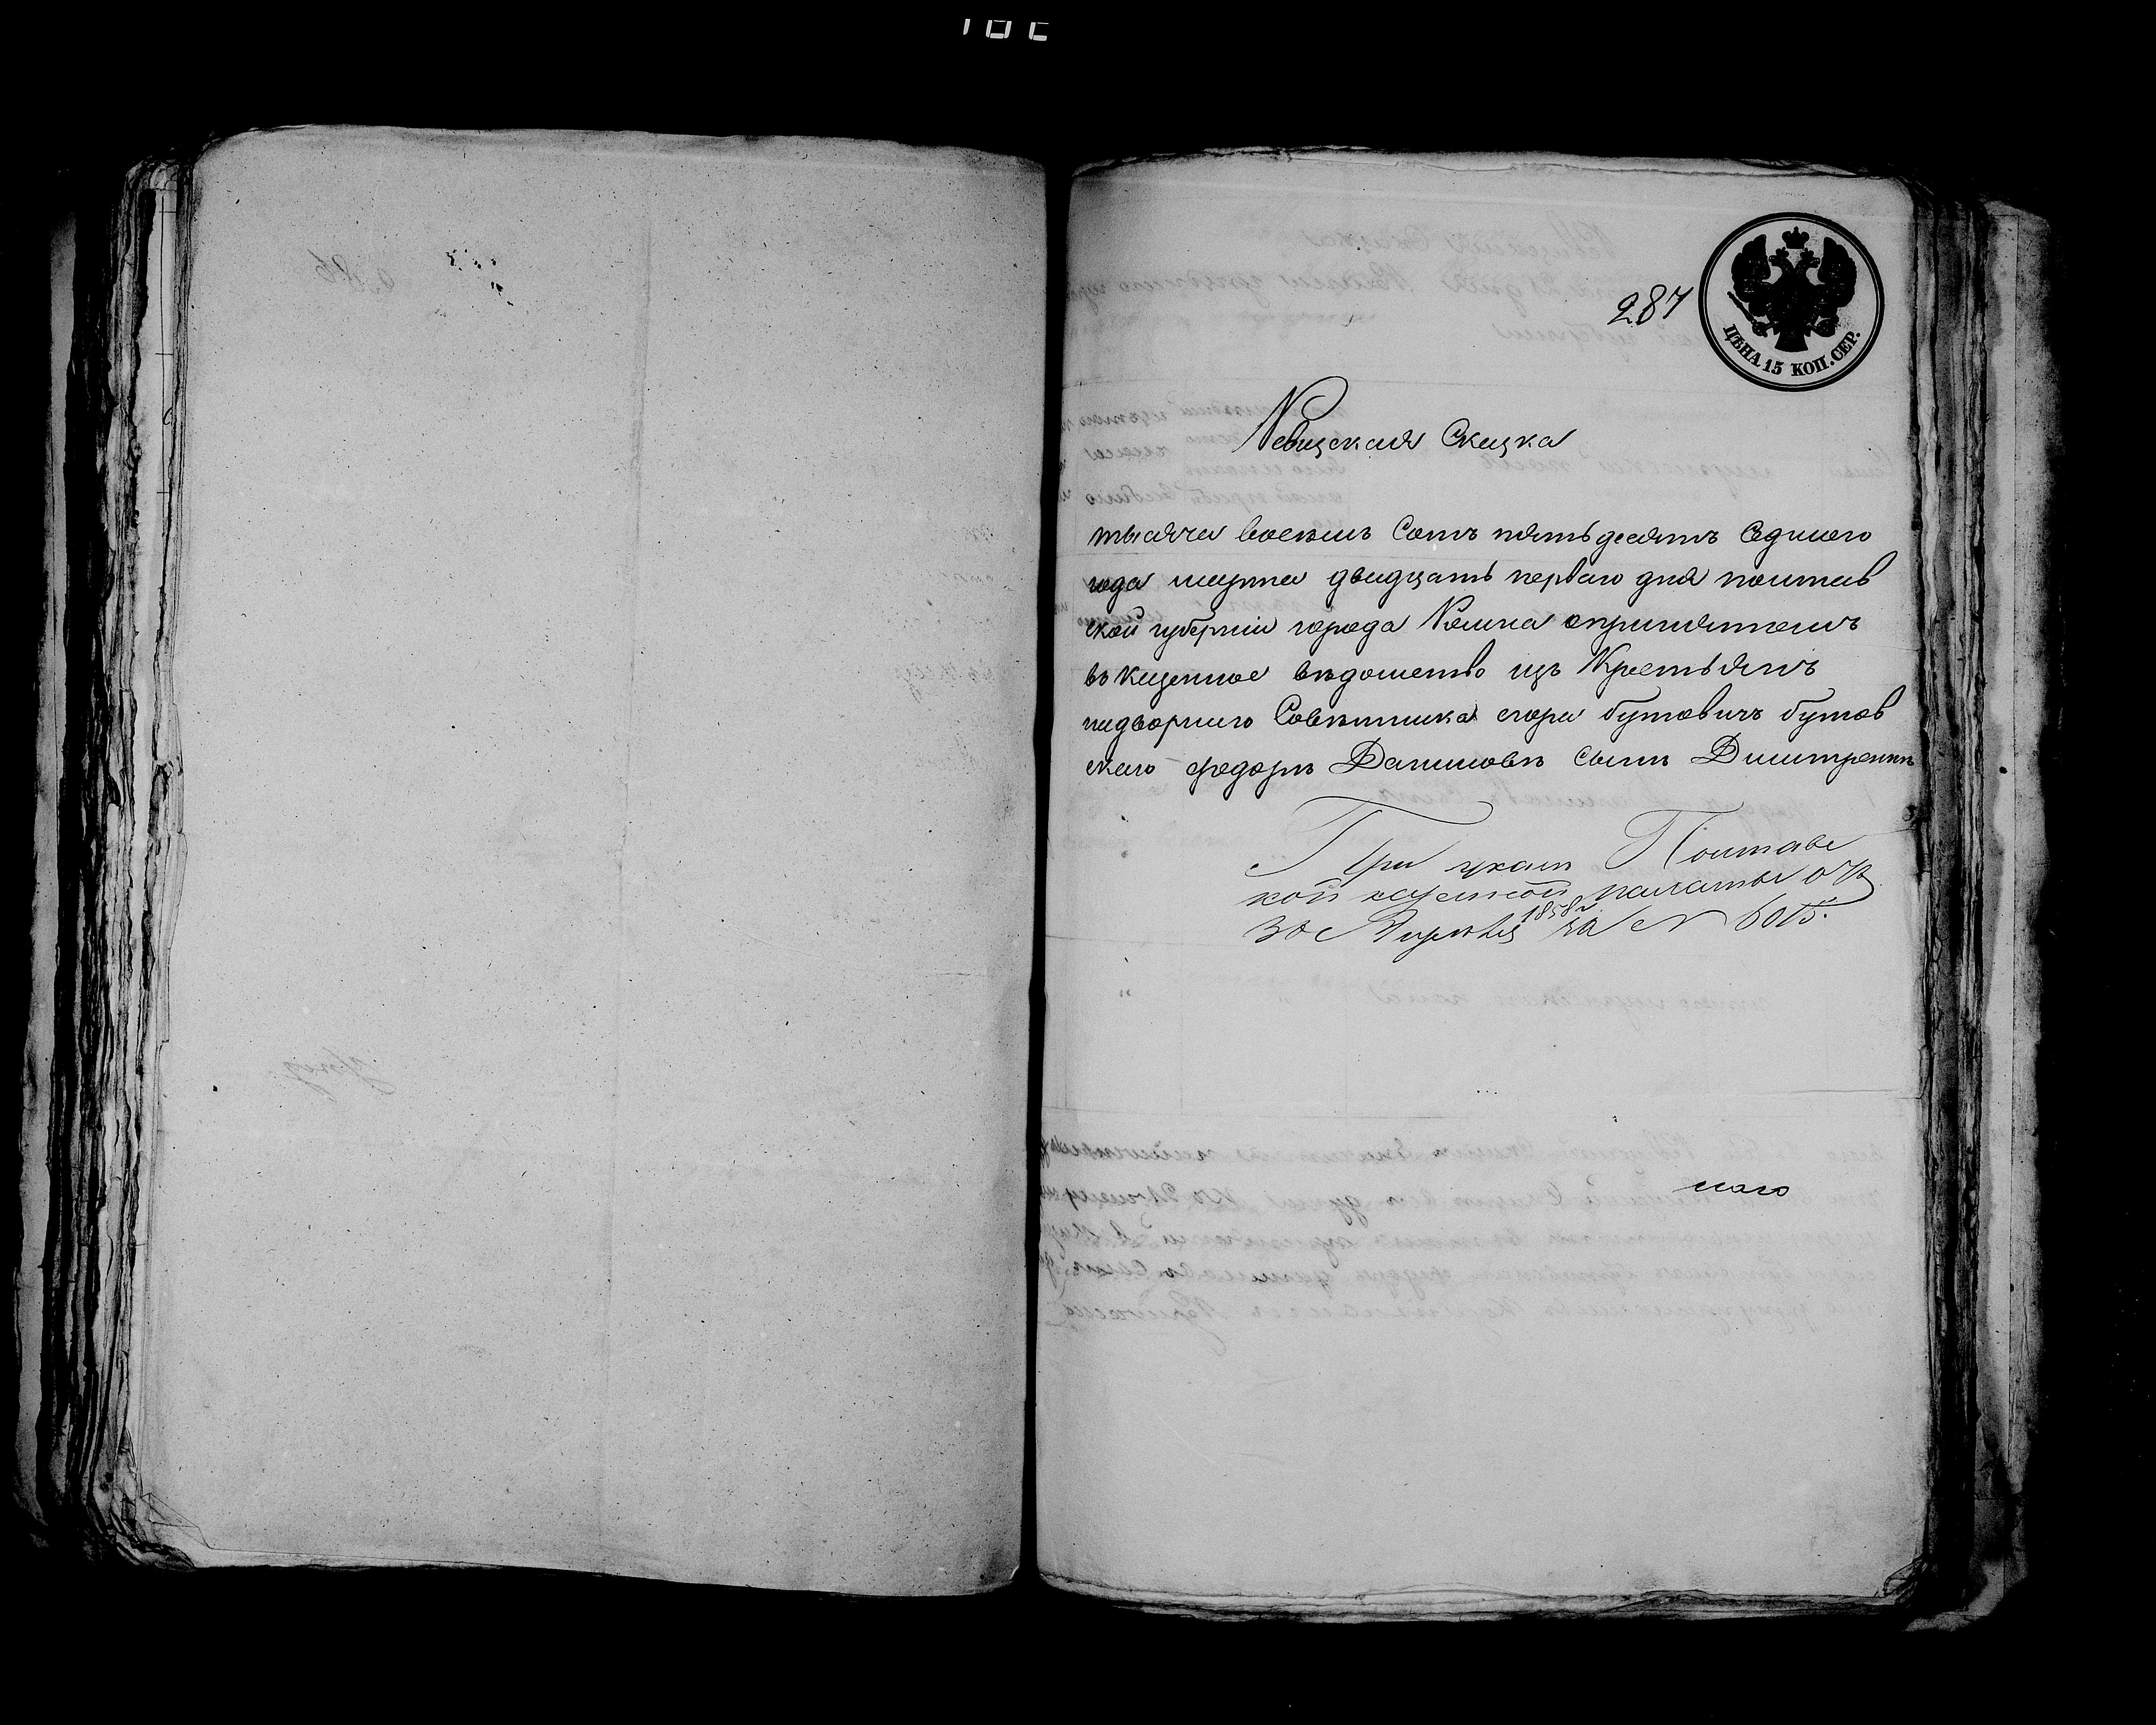 287
ЦѢНА 15 КОП. СЕР.
Ревизская Сказка
тысяча восемь Сотъ пятьдесятъ Седмого
года марта двадцать перваго дня полтав
ской губерніи города Ромна опринятомъ
въ Казенное вѣдомство изъ Крестьянъ
надворнаго Совѣтника егора бутовичъ бутов
скаго федорѣ Даниловѣ сынѣ Дмитренкѣ
При указѣ Полтавс
кой казенной палаты отъ
30 Апрѣля 1858 г. за № 6015.